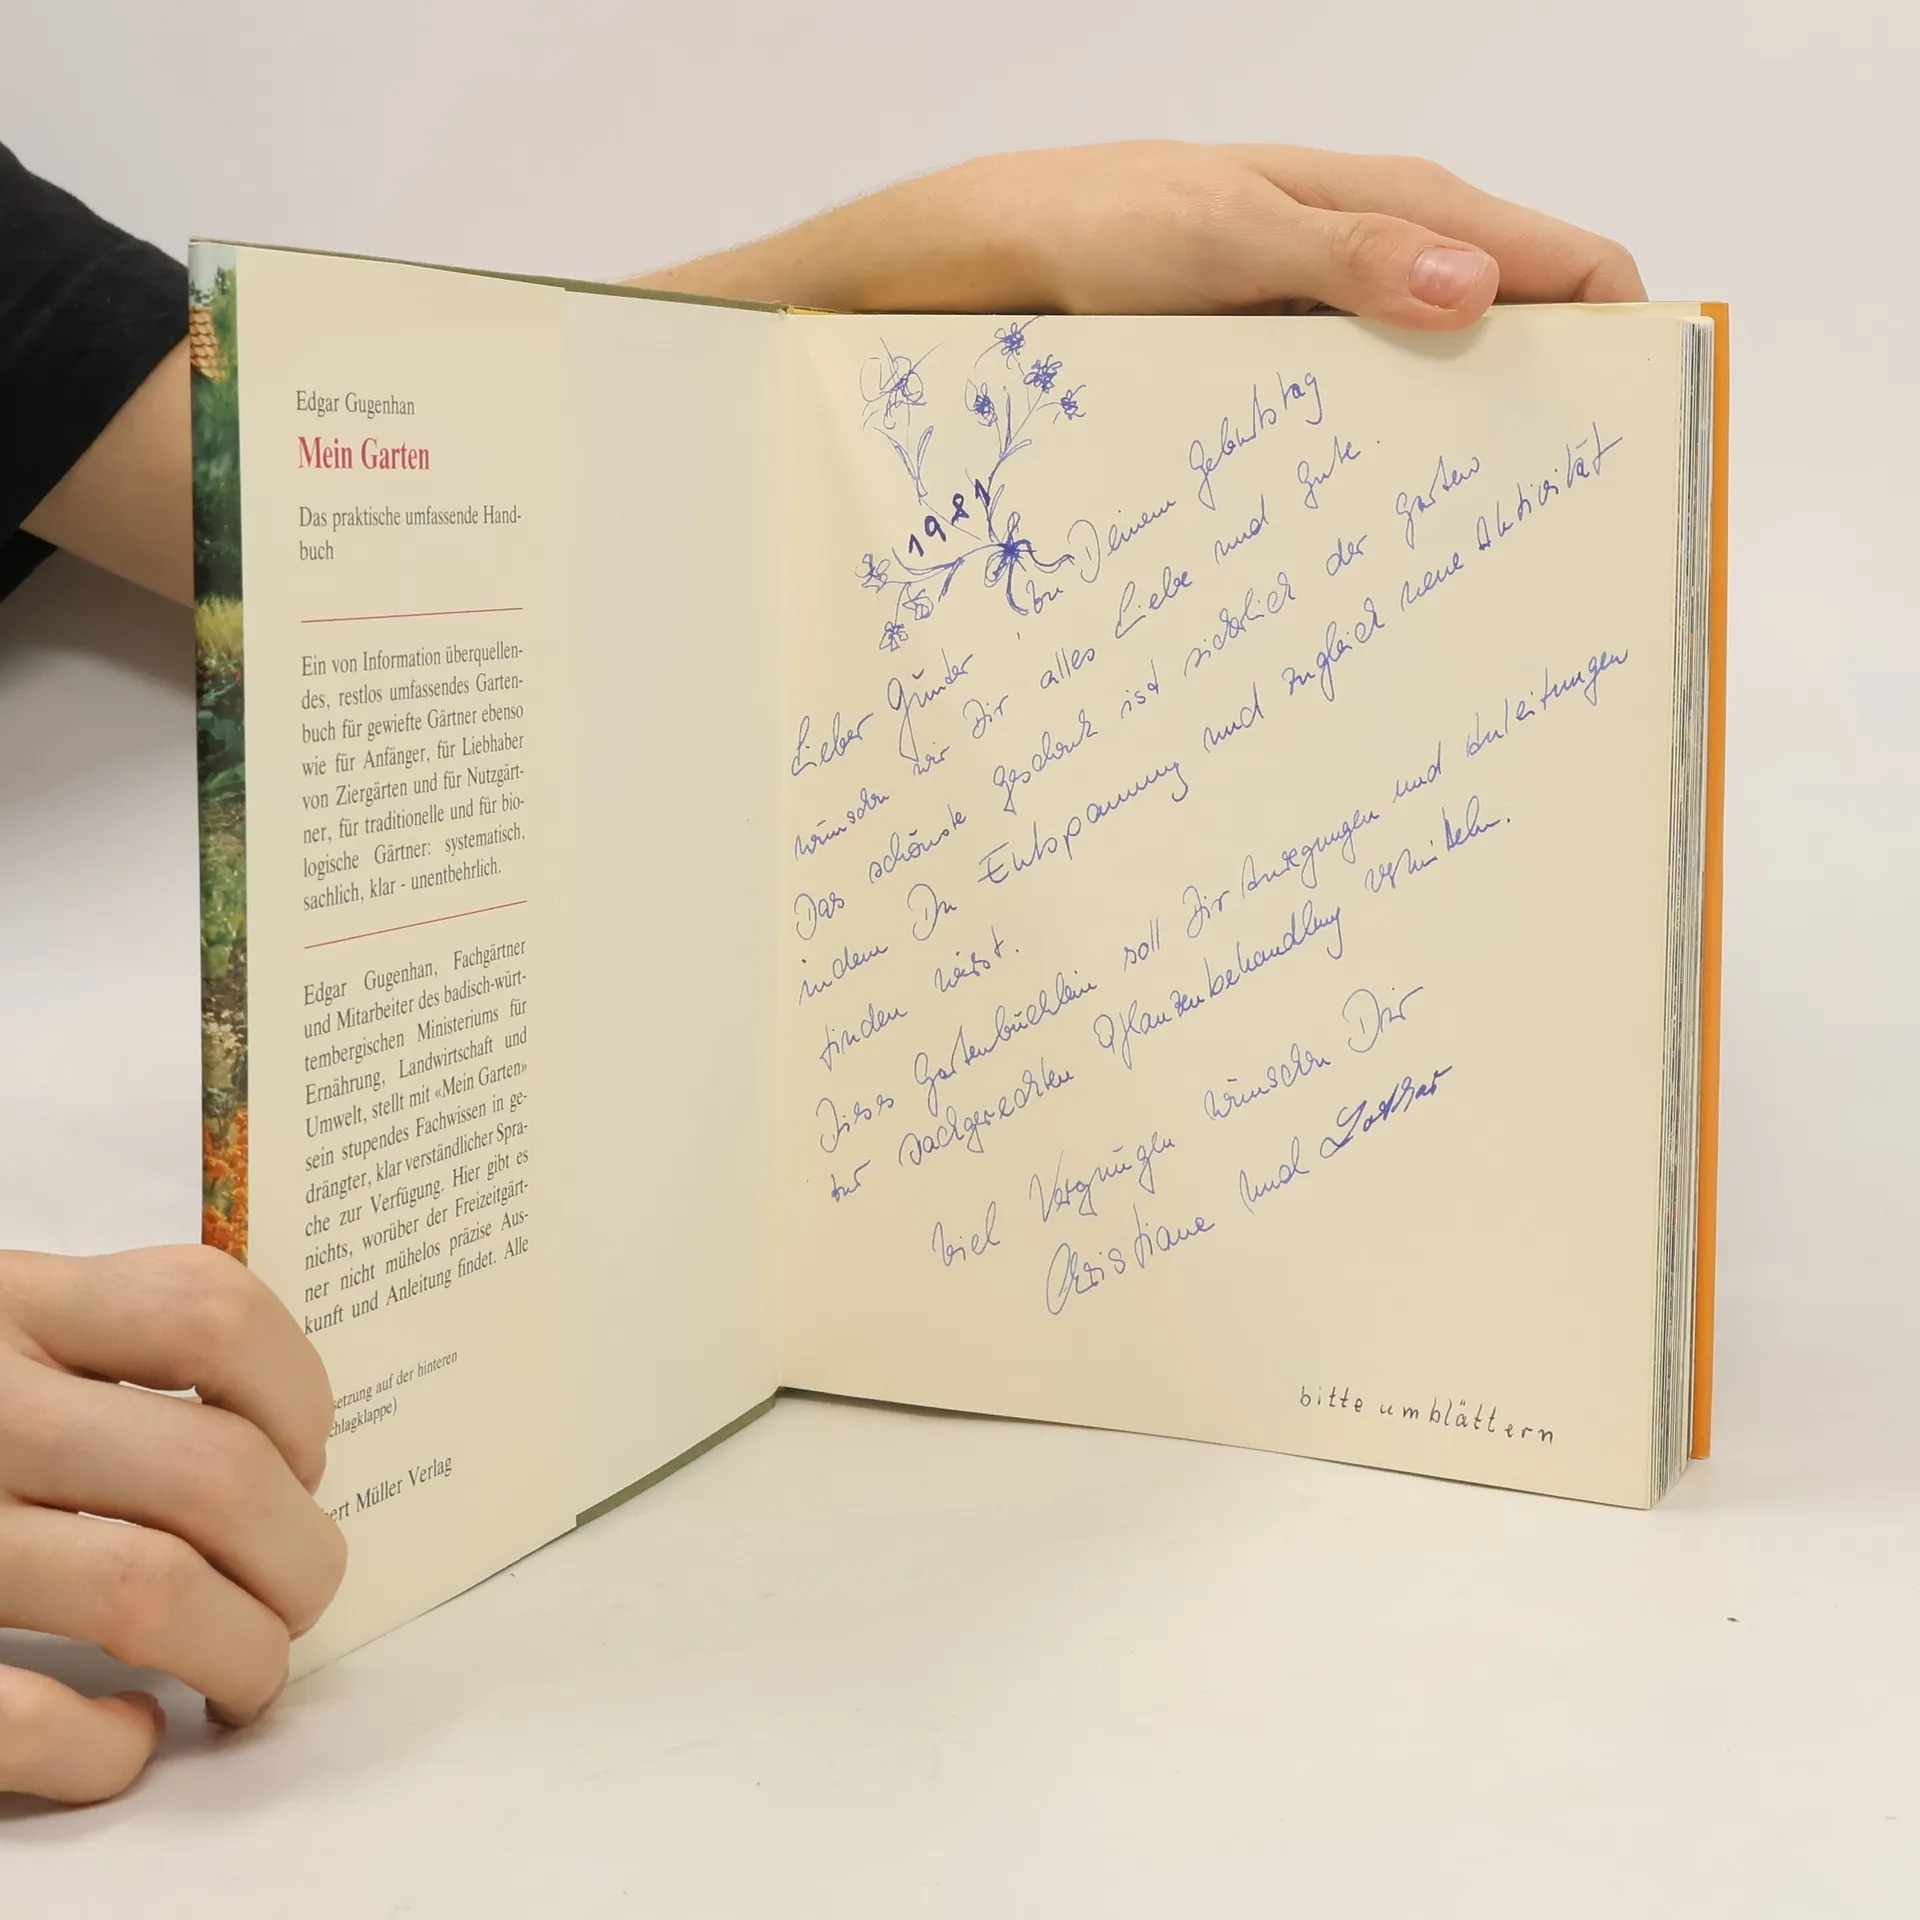 Edgar Gugenhan
Mein Garten
Das praktische umfassende Hand-
buch
Ein von Information überquellen-
des, restlos umfassendes Garten-
buch für gewiefte Gärtner ebenso
wie für Anfänger, für Liebhaber
von Ziergärten und für Nutzgärt-
ner, für traditionelle und für bio-
logische Gärtner: systematisch,
sachlich, klar - unentbehrlich.
Edgar Gugenhan, Fachgärtner
und Mitarbeiter des badisch-würt-
tembergischen Ministeriums für
Ernährung, Landwirtschaft und
Umwelt, stellt mit «Mein Garten»
sein stupendes Fachwissen in ge-
drängter, klar verständlicher Spra-
che zur Verfügung. Hier gibt es
nichts, worüber der Freizeitgärt-
ner nicht mühelos präzise Aus-
kunft und Anleitung findet. Alle
setzung auf der hinteren
chlagklappe)
ert Müller Verlag
1981
Lieber Günter, zu Deinem Geburtstag
wünschen wir Dir alles Liebe und Gute.
Das schönste Geschenk ist sicherlich der Garten
indem Du Entspannung und zugleich neue Aktivität
finden wirst.
Dieses Gartenbüchlein soll Dir Anregungen und Anleitungen
zur sachgerechten Pflanzenbehandlung vermitteln.
Viel Vergnügen wünschen Dir
Christiane und Lothar
bitte umblättern